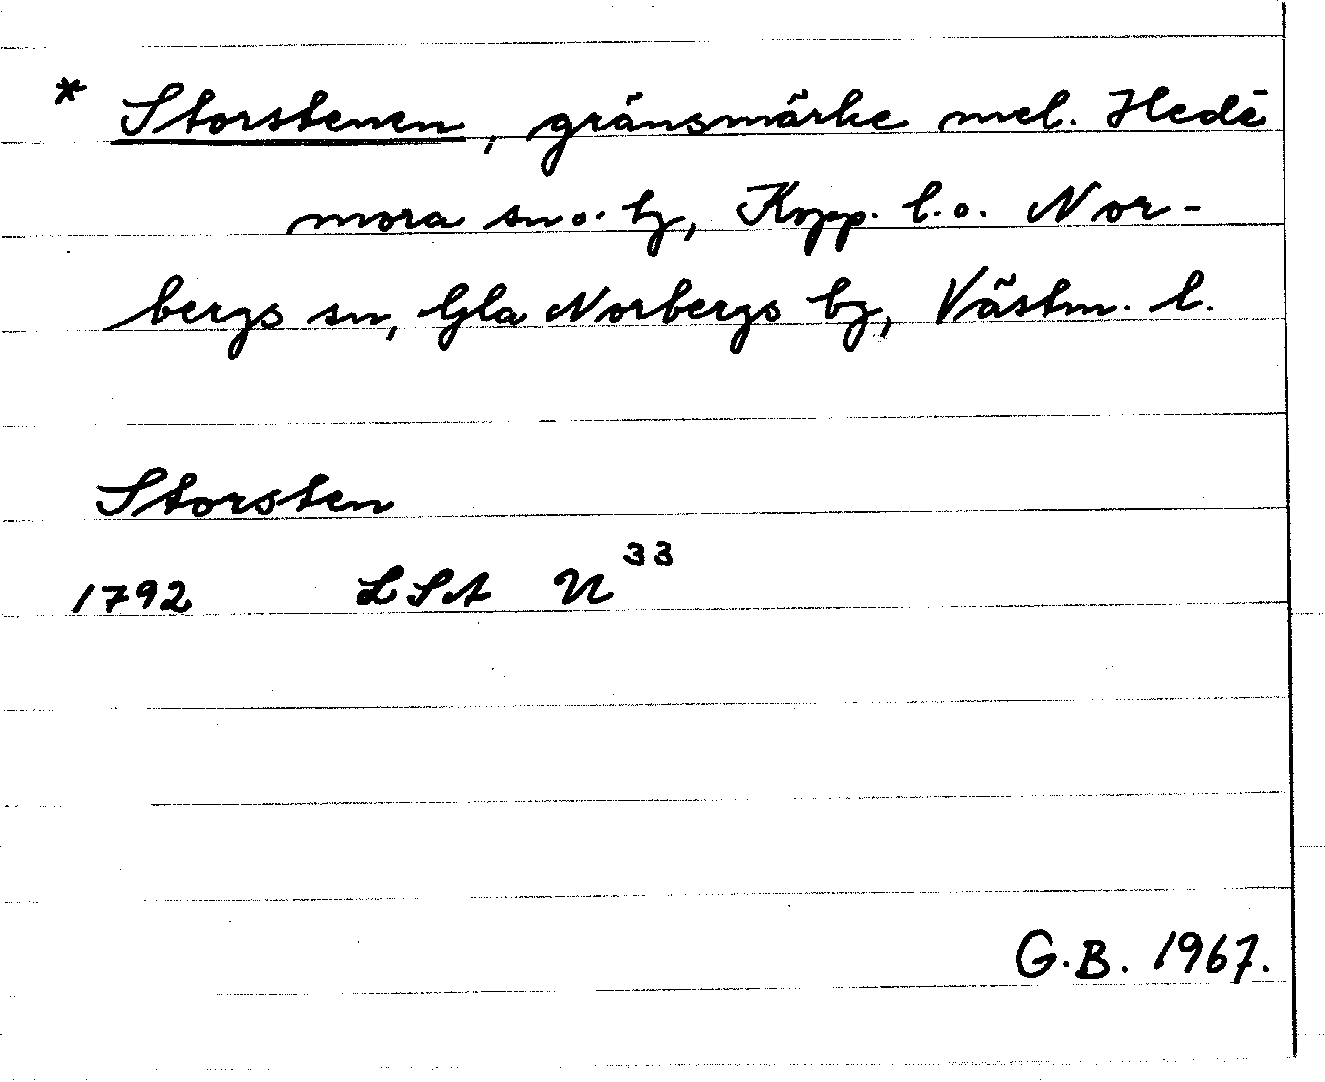 * Storstenen, gränsmärke mel. Hede-
mora sn o. by, Kopp. l. o. Nor-
bergs sn, Gla Norbergs by, Västm. l.
Storsten
1792 LSA U 33
G.B. 1967.